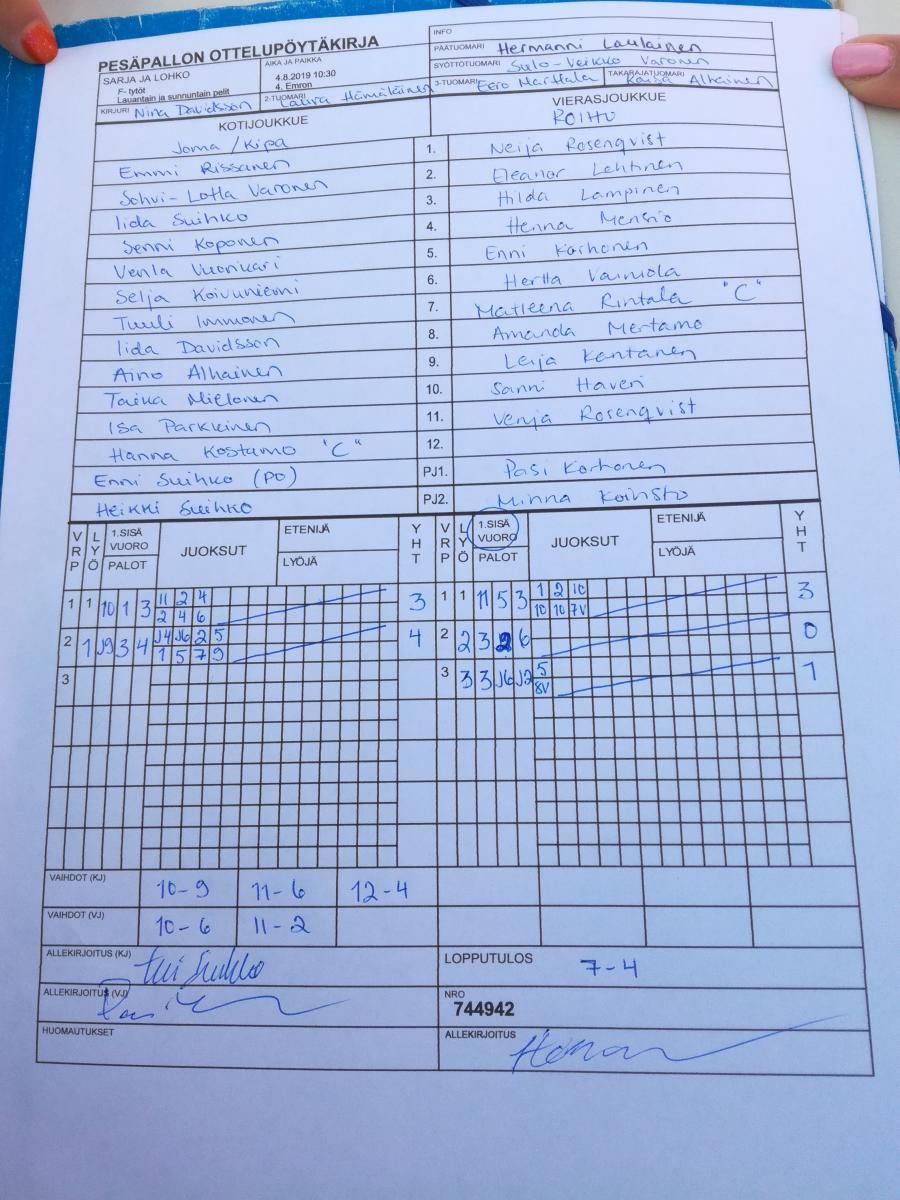 PESÄPALLON OTTELUPÖYTÄKIRJA
INFO
PÄÄTUOMARI Hermanni Laulainen
SARJA JA LOHKO
F- tytöt
Lauantain ja sunnuntain pelit
AIKA JA PAIKKA
4.8.2019 10:30
4. Emron
SYÖTTÖTUOMARI Sulo-Veikko Varonen
KIRJURI Nina Davidsson 2-TUOMARI Laura Hämäläinen 3-TUOMARI Eero Marttala TAKARAJATUOMARI Kaisa Alhainen
KOTIJOUKKUE VIERASJOUKKUE
Joma / Kipa ROIHU
Emmi Rissanen 1. Neija Rosenqvist
Sohvi-Lotta Varonen 2. Eleanor Lehtinen
Iida Suihko 3. Hilda Lampinen
Senni Koponen 4. Henna Mensio
Venla Vuorikari 5. Enni Korhonen
Selja Koivuniemi 6. Hertta Vainiola
Tuuli Immonen 7. Matleena Rintala "C"
Iida Davidsson 8. Amanda Mertamo
Aino Alhainen 9. Leija Kantanen
Taika Mielonen 10. Sanni Haveri
Isa Parkkinen 11. Venja Rosenqvist
Hanna Kostamo "C" 12.
Enni Suihko (PO) PJ1. Pasi Korhonen
Heikki Suihko PJ2. Minna Koivisto
VRP LYÖ 1.SISÄ VUORO PALOT JUOKSUT ETENIJÄ LYÖJÄ YHT VRP LYÖ 1.SISÄ VUORO PALOT JUOKSUT ETENIJÄ LYÖJÄ YHT
1 1 10 1 3 11 2 4 3 1 1 11 5 3 1 2 10 3
2 4 6 10 10 7V
2 1 J9 3 4 J4 J6 2 5 4 2 2 3 2 6 0
1 5 7 9
3 3 3 3 J6 J2 5 1
8V
VAIHDOT (KJ) 10-9 11-6 12-4
VAIHDOT (VJ) 10-6 11-2
ALLEKIRJOITUS (KJ) LOPPUTULOS 7-4
ALLEKIRJOITUS (VJ) NRO
744942
HUOMAUTUKSET ALLEKIRJOITUS